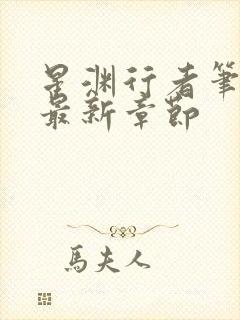 星渊行者笔
最新章节
馬夫人